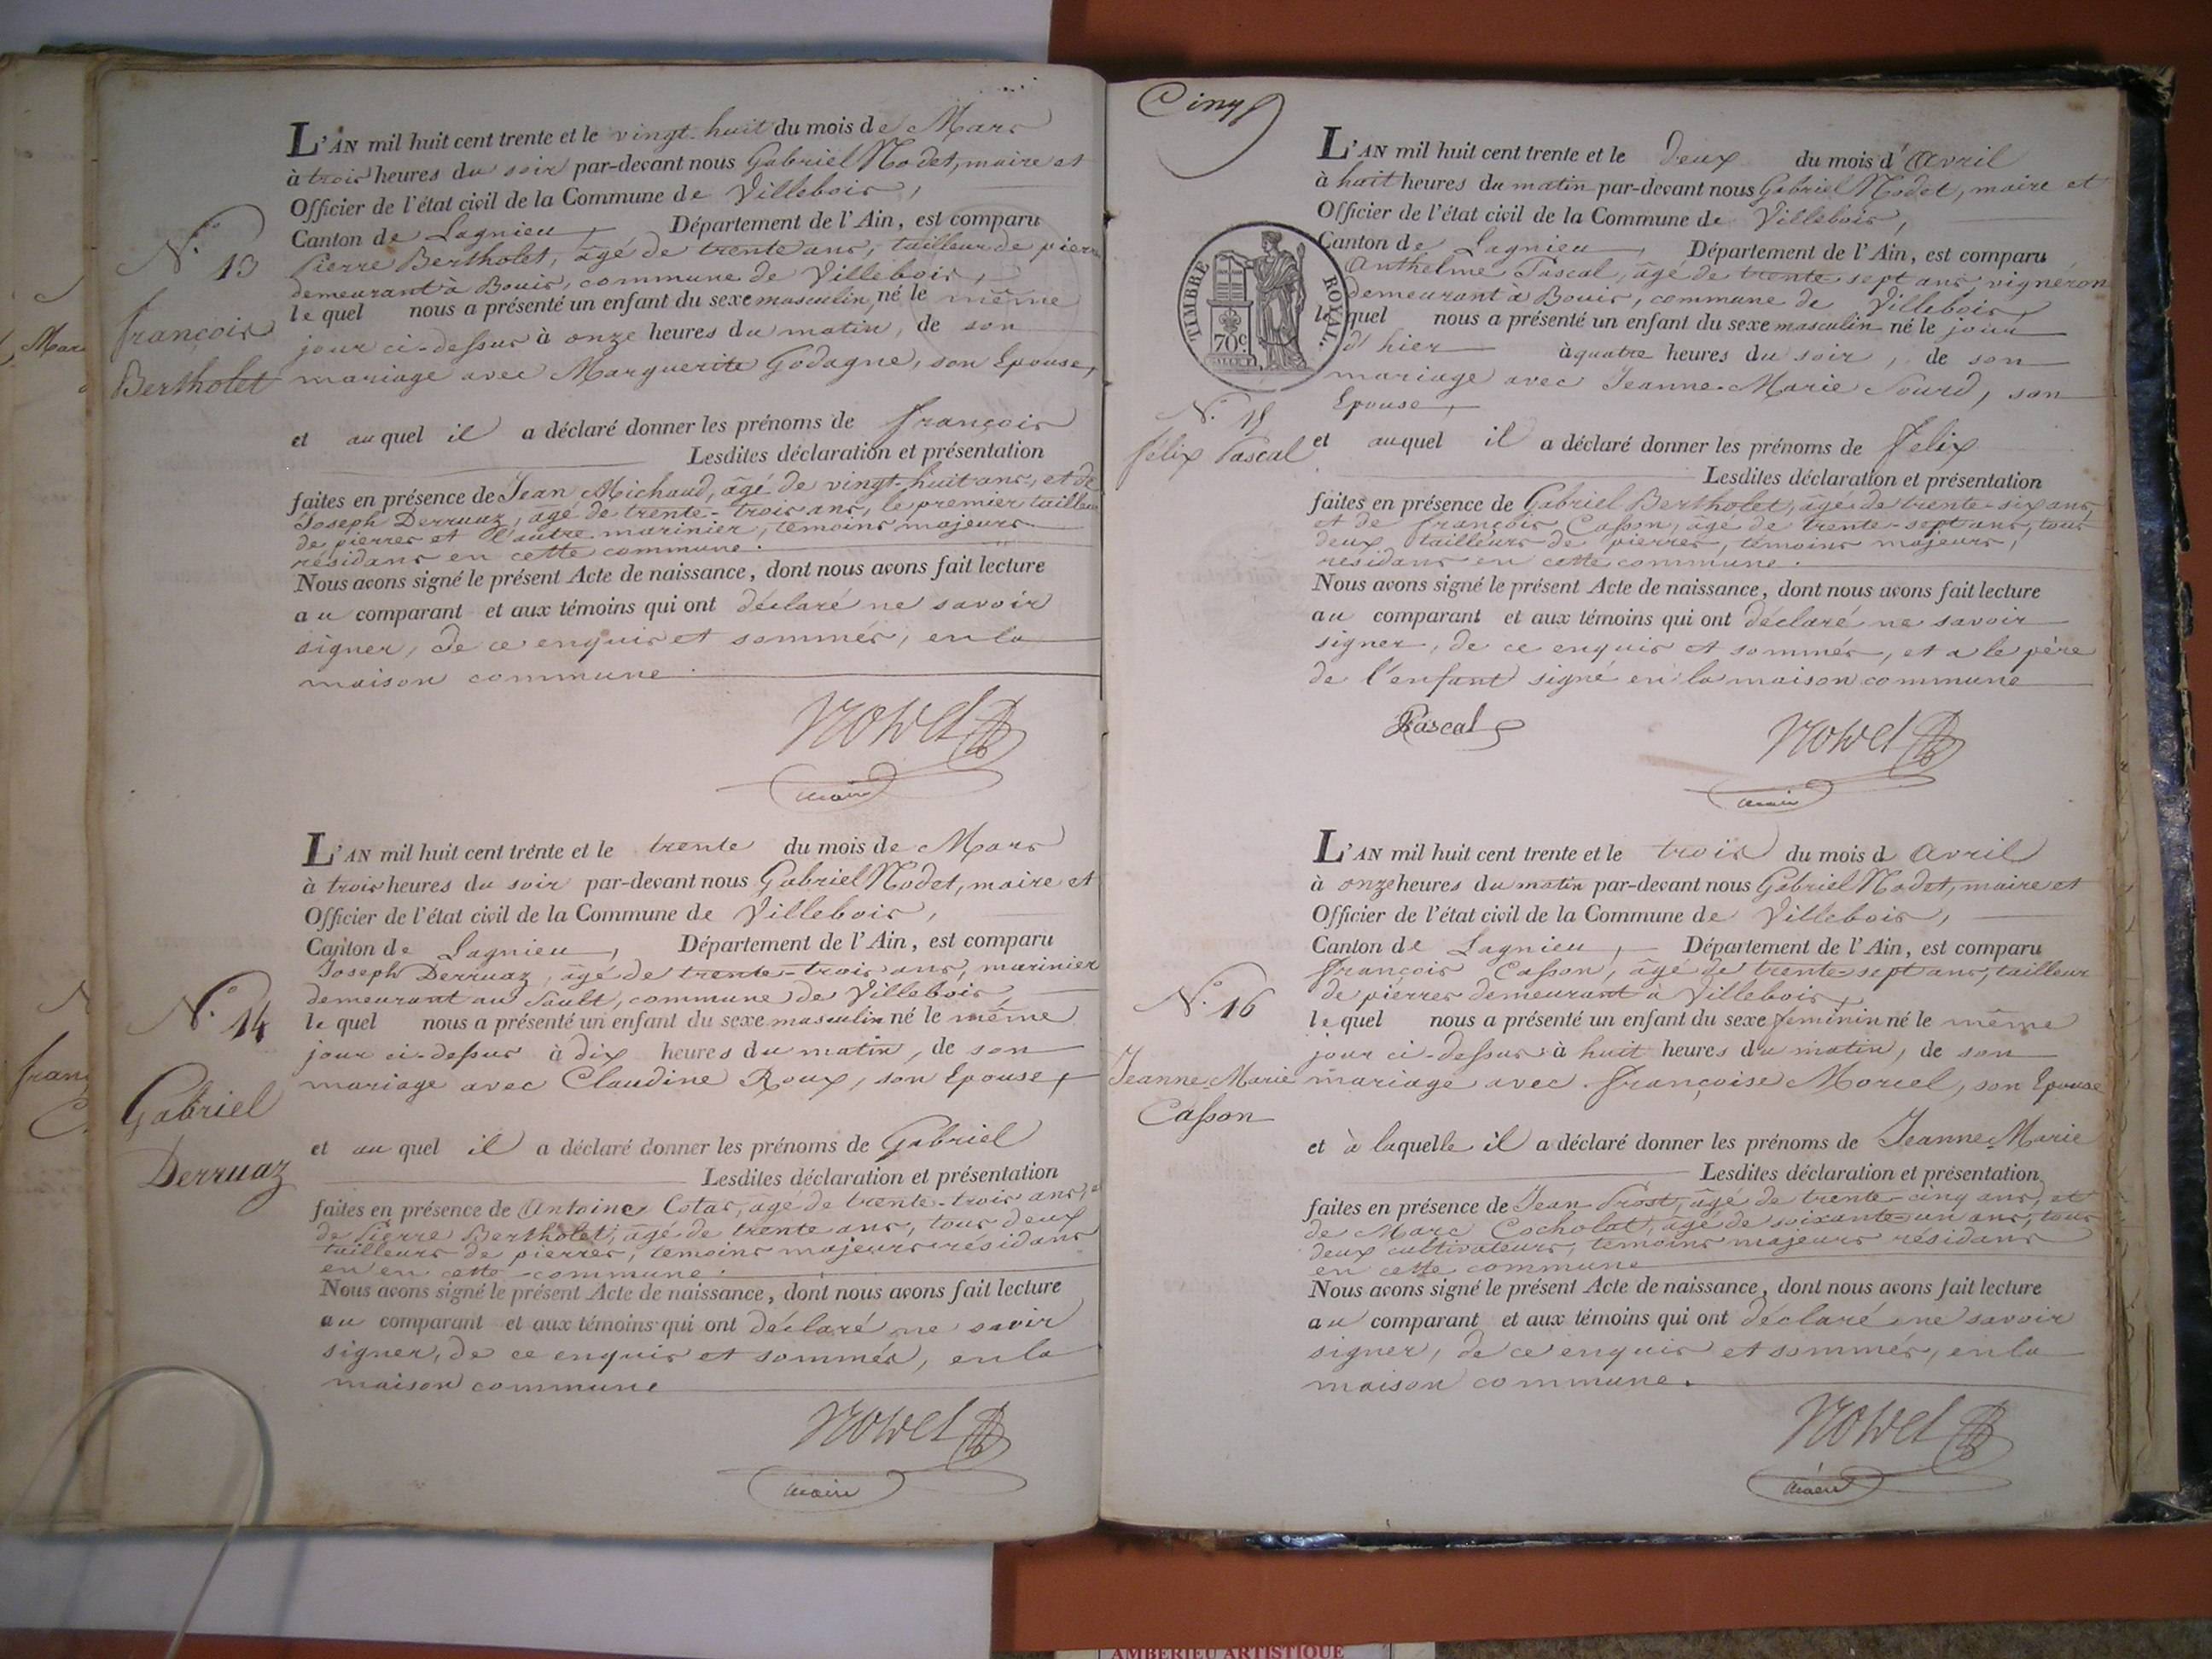 L'AN mil huit cent trente et le vingt-huit du mois de Mars
à trois heures du soir par-devant nous Gabriel Nodet, maire et
Officier de l'état civil de la Commune de Villebois,
Canton de Lagnieu, Département de l'Ain, est comparu
Pierre Bertholet, âgé de trente ans, tailleur de pierre
demeurant à Bouis, commune de Villebois,
le quel nous a présenté un enfant du sexe masculin, né le même
jour ci-dessus à onze heures du matin, de son
mariage avec Marguerite Godagne, son Epouse,
et auquel il a déclaré donner les prénoms de françois
Lesdites déclaration et présentation
faites en présence de Jean Michaud, âgé de vingt-huit ans, et de
Joseph Derruaz, âgé de trente-trois ans, le premier tailleur
de pierres et l'autre marinier, témoins majeurs
résidans en cette commune.
Nous avons signé le présent Acte de naissance, dont nous avons fait lecture
au comparant et aux témoins qui ont déclaré ne savoir
signer, de ce enquis et sommés, en la
maison commune.
Nodet
maire
N.° 13
françois
Bertholet
L'AN mil huit cent trente et le trente du mois de Mars
à trois heures du soir par-devant nous Gabriel Nodet, maire et
Officier de l'état civil de la Commune de Villebois,
Canton de Lagnieu, Département de l'Ain, est comparu
Joseph Derruaz, âgé de trente-trois ans, marinier
demeurant au Sault, commune de Villebois,
le quel nous a présenté un enfant du sexe masculin né le même
jour ci-dessus à dix heures du matin, de son
mariage avec Claudine Roux, son Epouse,
et auquel il a déclaré donner les prénoms de Gabriel
Lesdites déclaration et présentation
faites en présence de Antoine Cotas, âgé de trente-trois ans, et
de Pierre Bertholet, âgé de trente ans, tous deux
tailleurs de pierres, témoins majeurs résidans
en en cette commune.
Nous avons signé le présent Acte de naissance, dont nous avons fait lecture
au comparant et aux témoins qui ont déclaré ne savoir
signer, de ce enquis et sommés, en la
maison commune
Nodet
maire
N.° 14
Gabriel
Derruaz
Cinq
L'AN mil huit cent trente et le deux du mois d'Avril
à huit heures du matin par-devant nous Gabriel Nodet, maire et
Officier de l'état civil de la Commune de Villebois,
Canton de Lagnieu, Département de l'Ain, est comparu
Anthelme Pascal, âgé de trente-sept ans, vigneron
demeurant à Bouis, commune de Villebois,
le quel nous a présenté un enfant du sexe masculin né le jour
d'hier à quatre heures du soir, de son
mariage avec Jeanne-Marie Sourd, son
Epouse,
et auquel il a déclaré donner les prénoms de Felix
Lesdites déclaration et présentation
faites en présence de Gabriel Bertholet, âgé de trente-six ans,
et de françois Casson, âgé de trente-sept ans, tous
deux tailleurs de pierres, témoins majeurs,
résidans en cette commune.
Nous avons signé le présent Acte de naissance, dont nous avons fait lecture
au comparant et aux témoins qui ont déclaré ne savoir
signer, de ce enquis et sommés, et a le père
de l'enfant signé en la maison commune
Pascal Nodet
maire
TIMBRE ROYAL.
70c
N.° 15
félix Pascal
L'AN mil huit cent trente et le trois du mois d Avril
à onze heures du matin par-devant nous Gabriel Nodet, maire et
Officier de l'état civil de la Commune de Villebois,
Canton de Lagnieu, Département de l'Ain, est comparu
françois Casson, âgé de trente-sept ans, tailleur
de pierres demeurant à Villebois,
le quel nous a présenté un enfant du sexe feminin né le même
jour ci-dessus à huit heures du matin, de son
mariage avec françoise Morel, son Epouse
et à laquelle il a déclaré donner les prénoms de Jeanne-Marie
Lesdites déclaration et présentation
faites en présence de Jean Prost, âgé de trente-cinq ans, et
de Marc Cocholat, âgé de soixante-un ans, tous
deux cultivateurs, témoins majeurs résidans
en cette commune
Nous avons signé le présent Acte de naissance, dont nous avons fait lecture
au comparant et aux témoins qui ont déclaré ne savoir
signer, de ce enquis et sommés, en la
maison commune.
Nodet
maire
N.° 16
Jeanne-Marie
Casson
AMBERIEU ARTISTIQUE